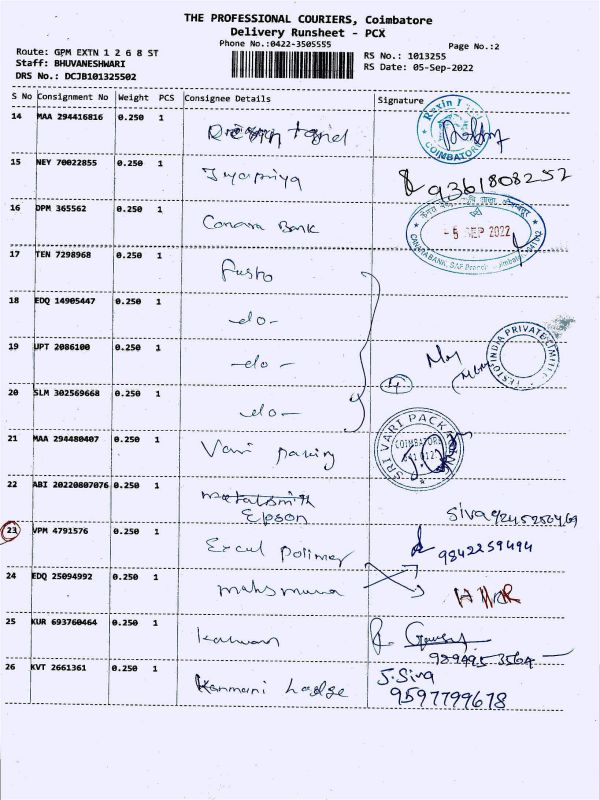 THE PROFESSIONAL COURIERS, Coimbatore
Delivery Runsheet - PCX
Phone No.:0422-3505555
Page No.:2
Route: GPM EXTN 1 2 6 8 ST
Staff: BHUVANESHWARI
DRS No.: DCJB101325502
RS No.: 1013255
RS Date: 05-Sep-2022
S No Consignment No Weight PCS Consignee Details Signature
14 MAA 294416816 0.250 1
COIMBATORE
15 NEY 70022855 0.250 1 Jyapriya 9361808252
16 DPM 365562 0.250 1 Canara Bank
- 5 SEP 2022
CANARA BANK, SAF Branch
17 TEN 7298968 0.250 1 Festo
18 EDQ 14905447 0.250 1 -do-
19 UPT 2086100 0.250 1 -do-
INDIA PRIVATE LIMITED
20 SLM 302569668 0.250 1 -do- 4
21 MAA 294480407 0.250 1 Vari packing
SRI VARI PACKING
COIMBATORE
641 012
22 ABI 20220807076 0.250 1 metalsmith
Epson
Siva
23 VPM 4791576 0.250 1 Excel polimer 9842259494
24 EDQ 25094992 0.250 1
25 KUR 693760464 0.250 1 Kalwan
9894953564
26 KVT 2661361 0.250 1 Kanmani Lodge J.Siva
9597799678